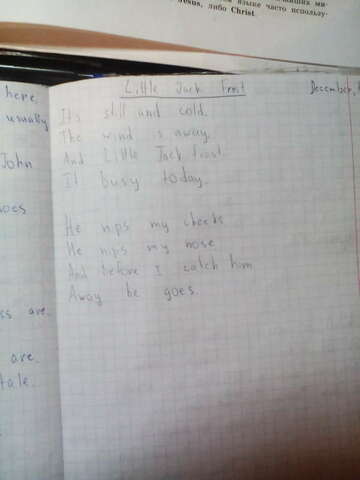 языке часто использу-
Jesus, либо Christ.
Little Jack Frost
December,
here
usually
John
oes
ss are.
are.
tale.
It's still and cold.
The wind is away.
And Little Jack frost
It busy today.
He nips my cheeks
He nips my nose
And before I catch him
Away he goes.